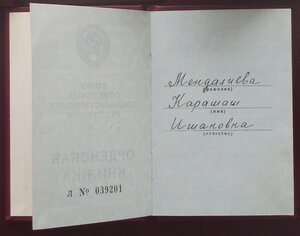 СОЮЗ
СОВЕТСКИХ
СОЦИАЛИСТИЧЕСКИХ
РЕСПУБЛИК
ОРДЕНСКАЯ
КНИЖКА
Л № 039201
Мендалиева
(фамилия)
Карашаш
(имя)
Ишановна
(отчество)